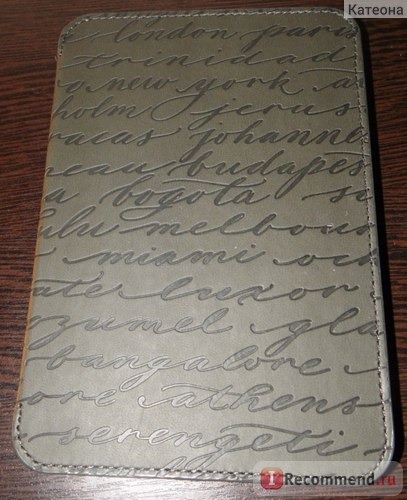 Катеона
london paris
trinidad
o new york a
holm jerus
racas johanne
neau budapes
a bogota s
ulu melbour
miami och
ate luxor
ozumel gla
bangalore
ore athens
serengeti
iRecommend.ru